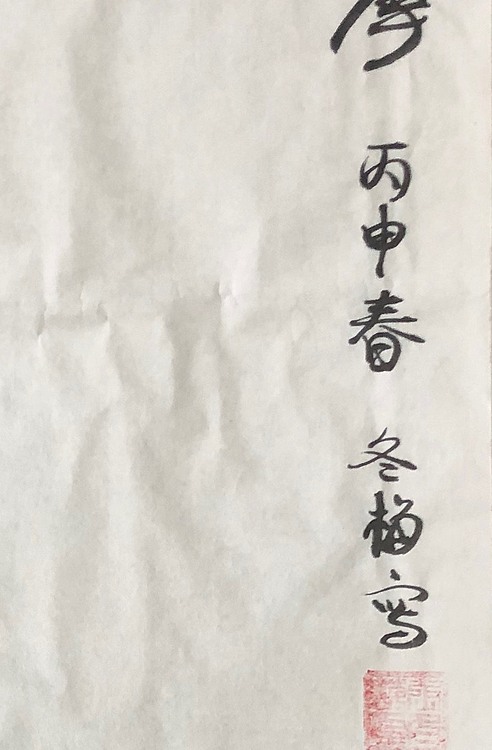 丙申春 冬梅寫